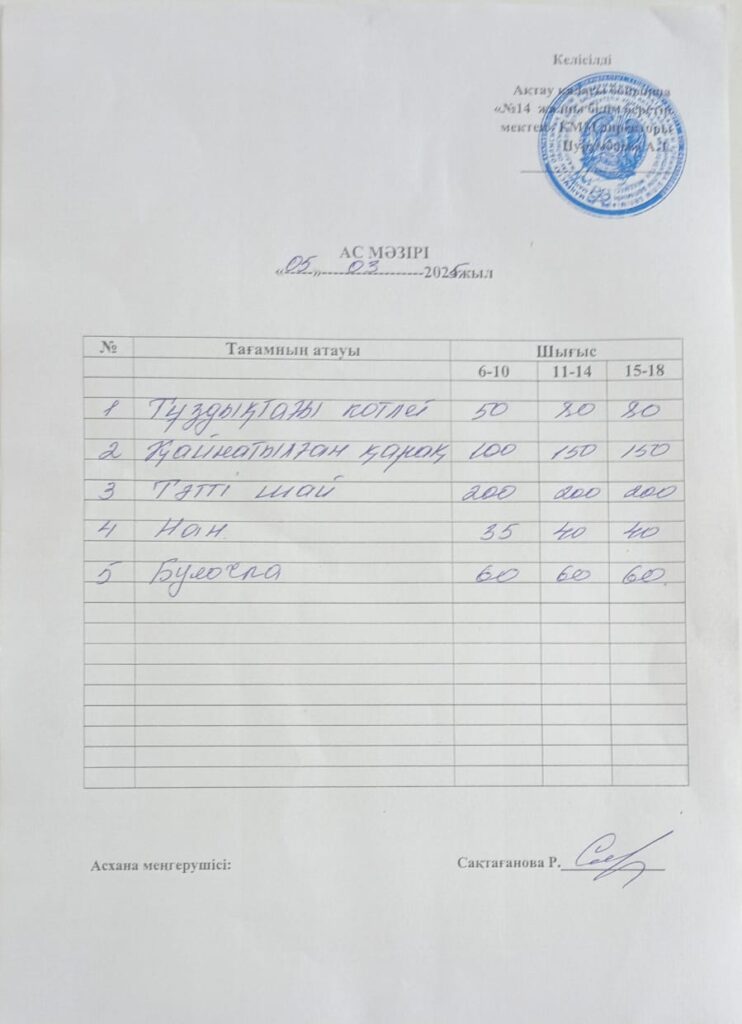 Келісілді
Ақтау қаласы бойынша
«№14 жалпы білім беретін
мектеп» КММ директоры
А.Т.
АС МӘЗІРІ
«05»03 2025жыл
№ Тағамның атауы Шығыс
6-10 11-14 15-18
1 Тұздықтағы котлет 50 80 80
2 Қайнатылған қарақ 100 150 150
3 Тәтті шай 200 200 200
4 Нан 35 40 40
5 Булочка 60 60 60
Асхана меңгерушісі: Сақтағанова Р.